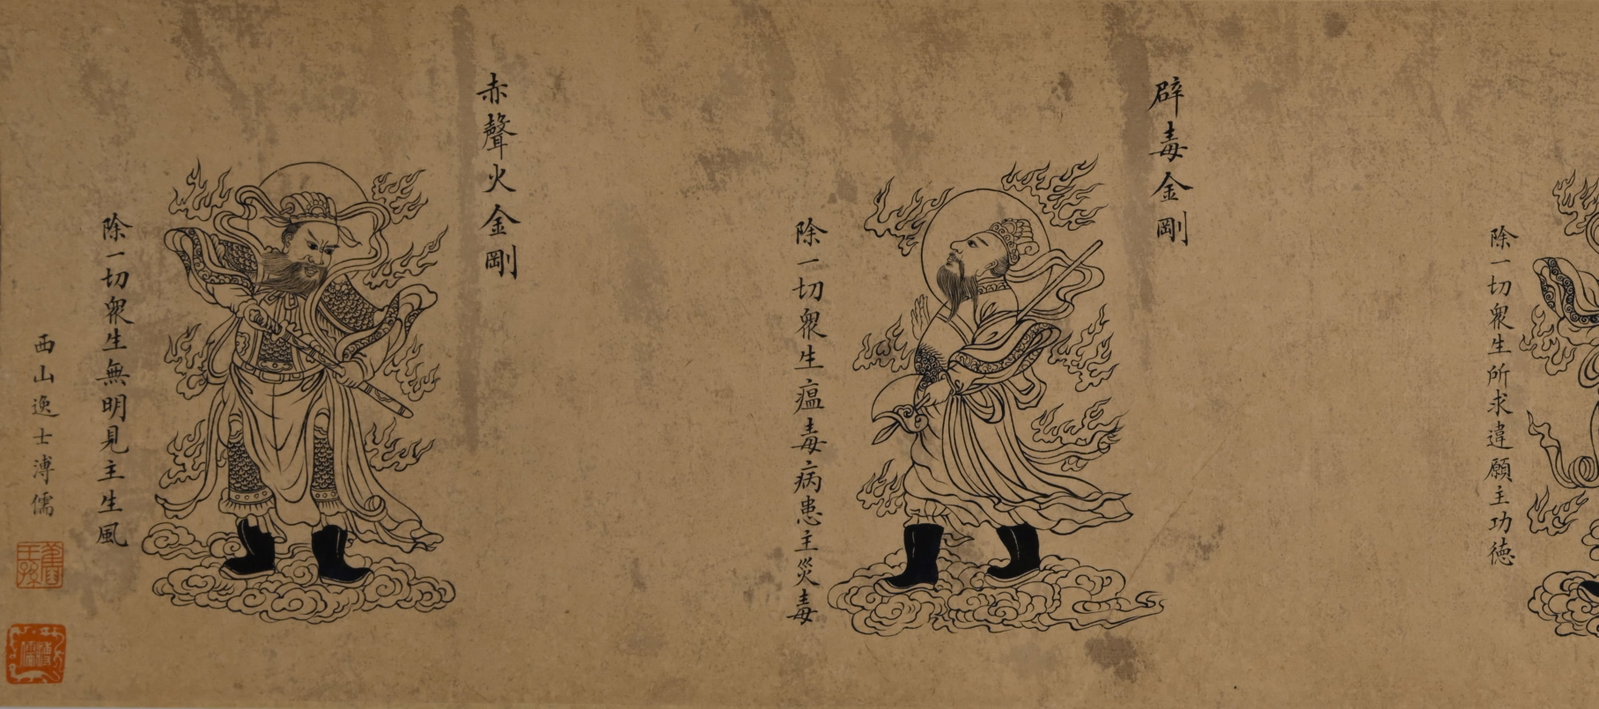 除一切眾生所求違願主功德
辟毒金剛
除一切眾生瘟毒病患主災毒
赤聲火金剛
除一切眾生無明見主生風
西山逸士溥儒
舊王孫
溥儒